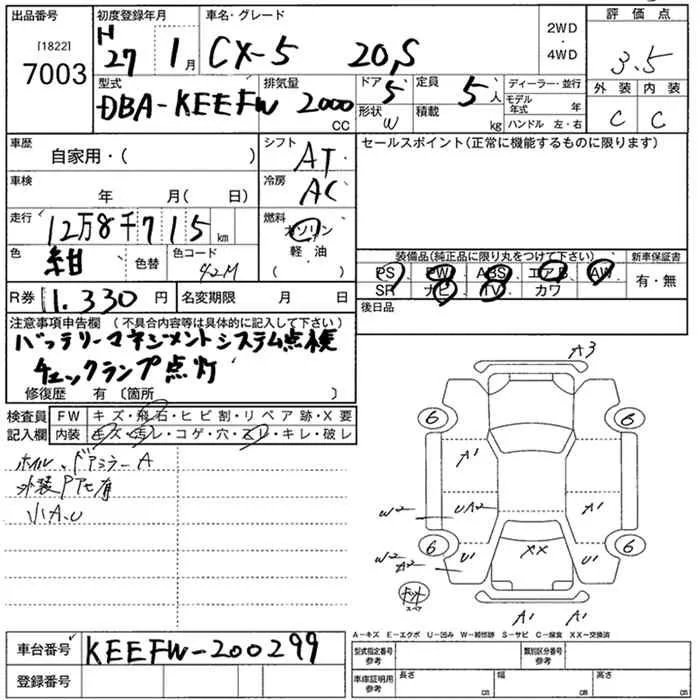 出品番号 初度登録年月 車名・グレード 評価点
[1822]
7003
H 27年 1月 CX-5 20S 2WD・4WD 3.5
型式 排気量 ドア 定員 ディーラー・並行 外装 内装
DBA-KEEFW 2000 CC 5 5人 モデル年式 年 C C
形状 W 積載 kg ハンドル 左・右
車歴 自家用・( ) シフト AT セールスポイント(正常に機能するものに限ります)
車検 年 月( 日) 冷房 AC
走行 12万8千715km 燃料 ガソリン
軽・油
( )
色 紺 色替 色コード 42M
装備品(純正品に限り丸をつけて下さい) 新車保証書
PS、PW、ABS、エアB、AW 有・無
SR ナビ、TV、カワ
R券 1.330円 名変期限 月 日 後日品
注意事項申告欄 (不具合内容等は具体的に記入して下さい)
バッテリーマネジメントシステム点検
チェックランプ点灯
修復歴 有 〔箇所 〕
検査員 FW キズ・飛石・ヒビ割・リペア跡・X要
記入欄 内装 キズ・汚レ・コゲ・穴・スレ・キレ・破レ
ホイル、ドアミラーA
外装PTセ有
小A.U
A3
6 6
A'
W2 UA2 A'
6 6
W2 A2 U' U'
XX
スペア
A' A'
A-キズ E-エクボ U-凹み W-補修跡 S-サビ C-腐食 XX-交換済
車台番号 KEEFW-200299
登録番号
型式指定番号 参考 類別区分番号 参考
車庫証明用 参考 長さ cm 幅 cm 高さ cm